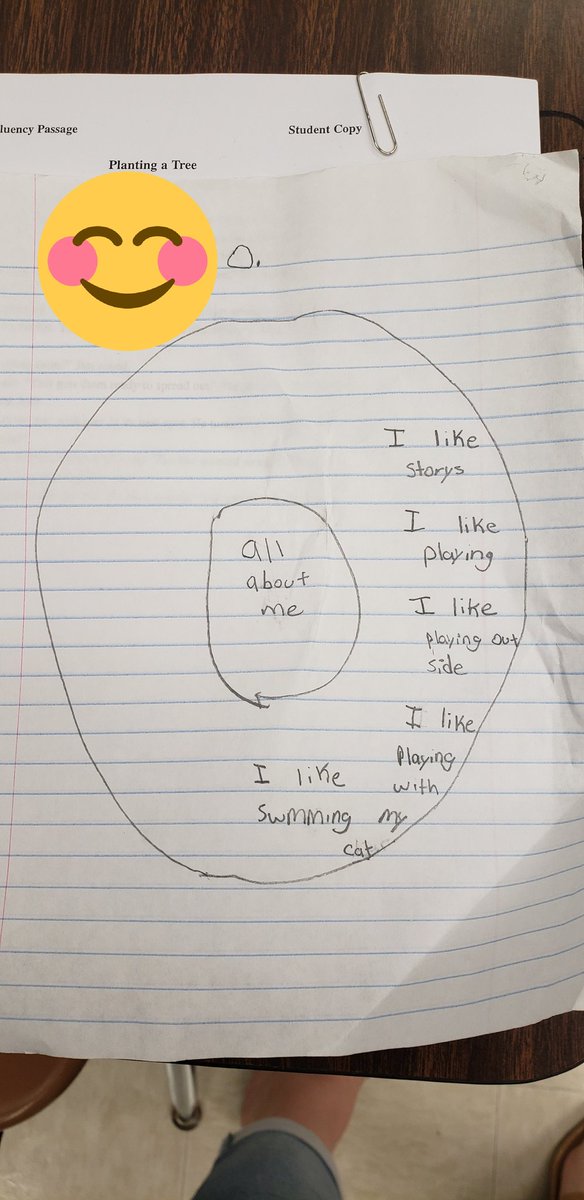 luency Passage
Student Copy
Planting a Tree
O.
all
about
me
I like
storys
I like
playing
I like
playing out
side
I like
Playing
with
my
cat
I like
swmming